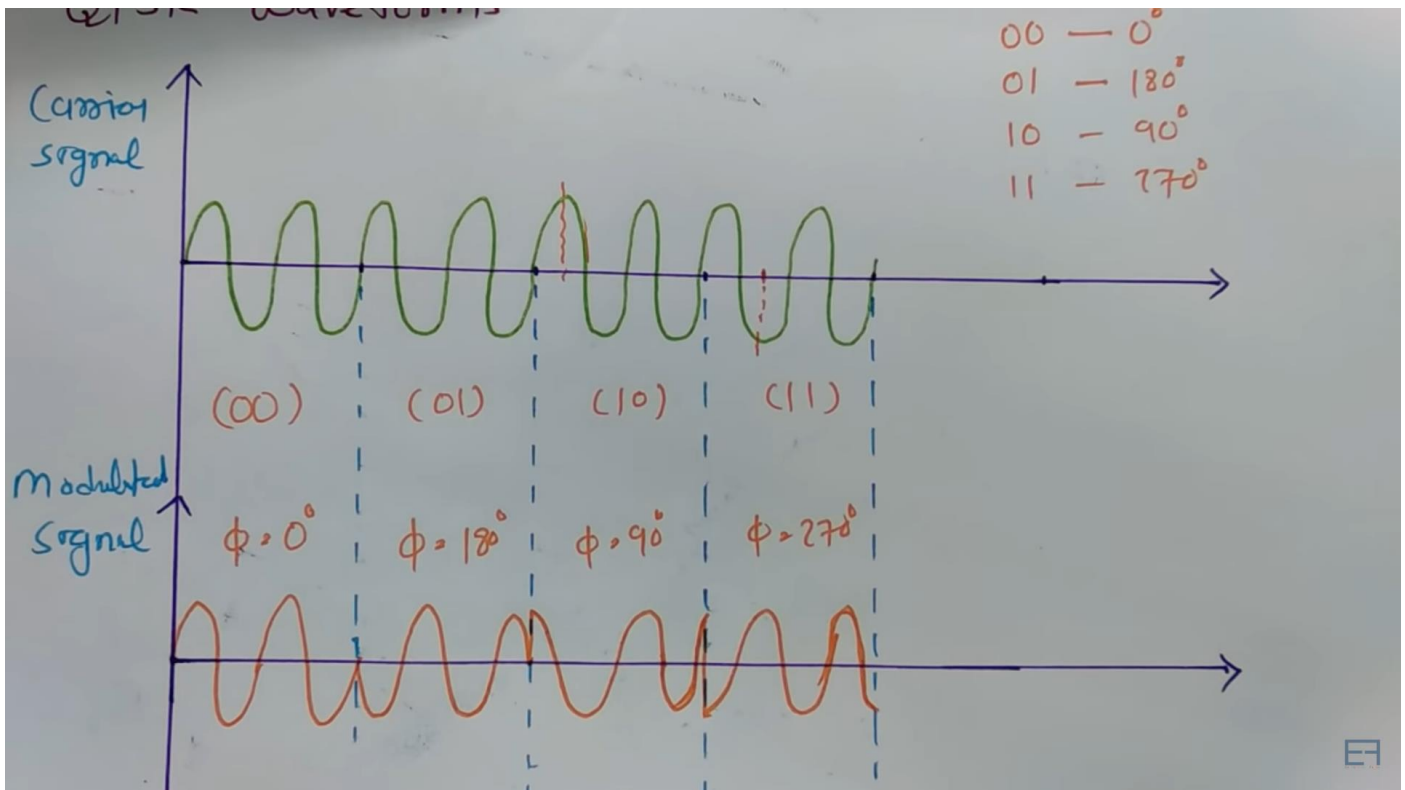 00 — 0°
01 — 180°
10 — 90°
11 — 270°
Carrier
signal
(00) (01) (10) (11)
Modulated
signal
ϕ = 0° ϕ = 180° ϕ = 90° ϕ = 270°
EF